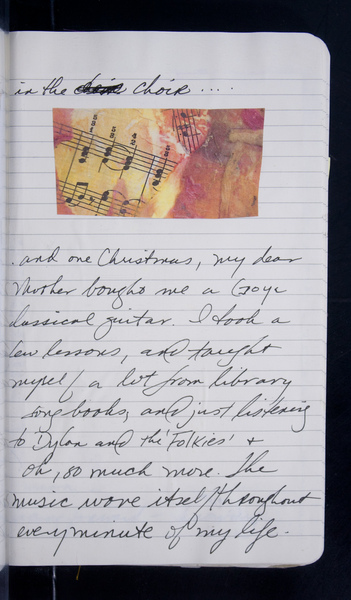 in the choir ....
. and one Christmas, my dear
Mother bought me a Goya
classical guitar. I took a
few lessons, and taught
myself a lot from library
song books, and just listening
to Dylan and the 'Folkies' +
oh, so much more. The
music wove itself throughout
every minute of my life.